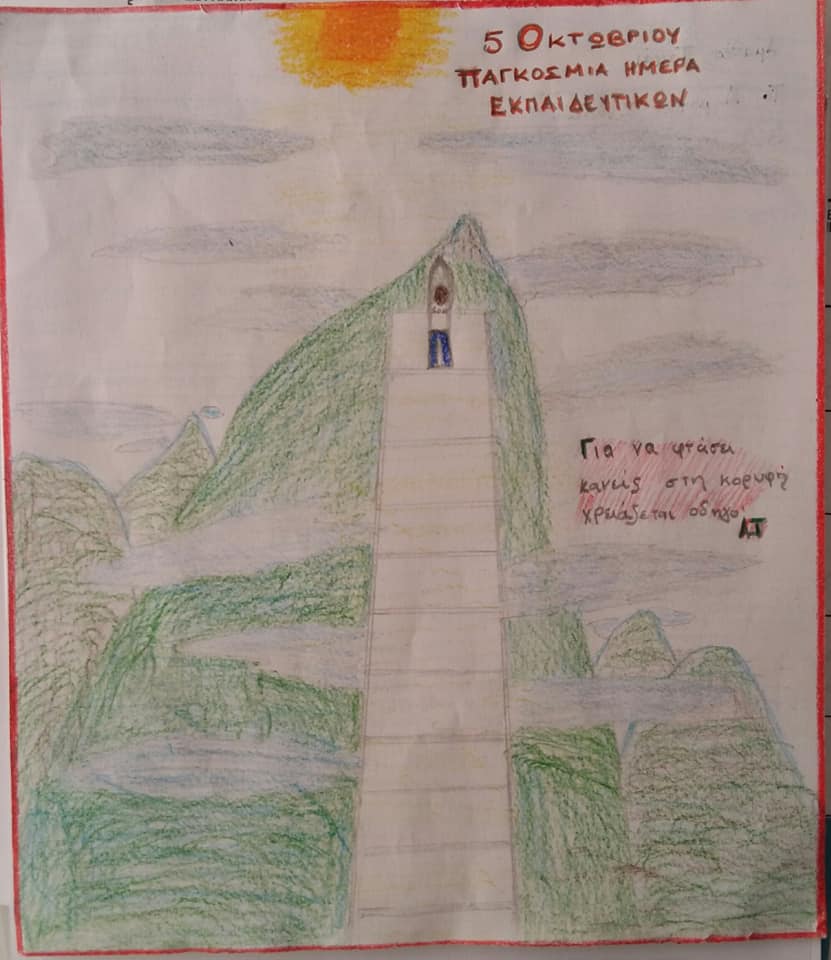 5 ΟΚΤΩΒΡΙΟΥ
ΠΑΓΚΟΣΜΙΑ ΗΜΕΡΑ
ΕΚΠΑΙΔΕΥΤΙΚΩΝ
Για να φτάσει
κανείς στη κορυφή
χρειάζεται οδηγό
ΛΤ